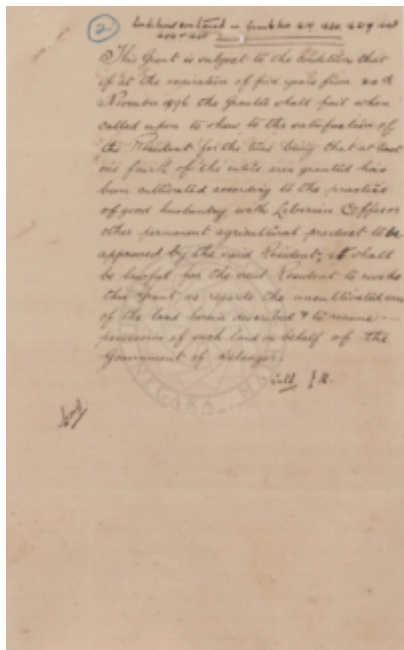 2
Conditions contained in Grants Nos
This Grant is subject to the Condition that
if at the expiration of five years from 20th
November 1896 the Grantee shall fail when
called upon to show to the satisfaction of
the Resident for the time being that at least
one fourth of the entire area granted has
been cultivated according to the practice
of good husbandry, with Liberian Coffee or
other permanent agricultural product to be
approved by the said Resident, it shall
be lawful for the said Resident to revoke
this Grant as regards the uncultivated area
of the land herein described & to resume
possession of such land on behalf of the
Government of Selangor.
NEGARA